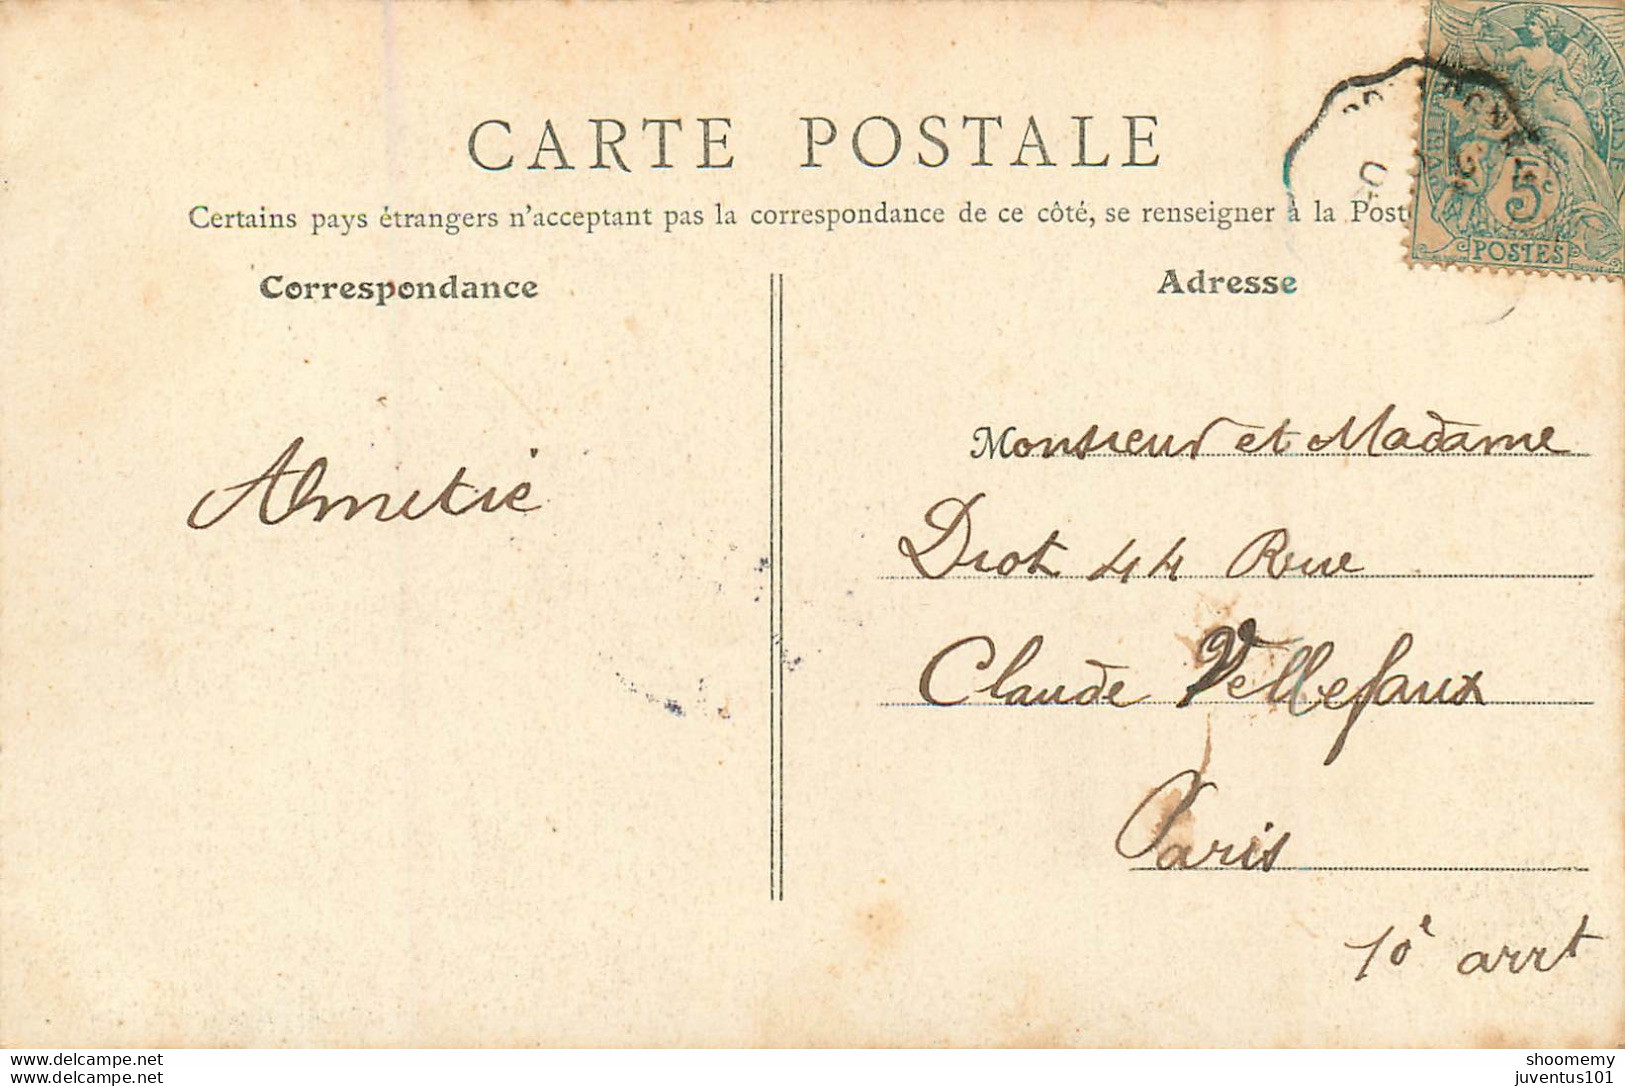 CARTE POSTALE
Certains pays étrangers n'acceptant pas la correspondance de ce côté, se renseigner à la Post
Correspondance
Adresse
Almitié
Monsieur et Madame
Drot 44 Rue
Claude Vellefaux
Paris
10è arrt
FRANÇAISE
5c
POSTES
www.delcampe.net
www.delcampe.net
shoomemy
juventus101